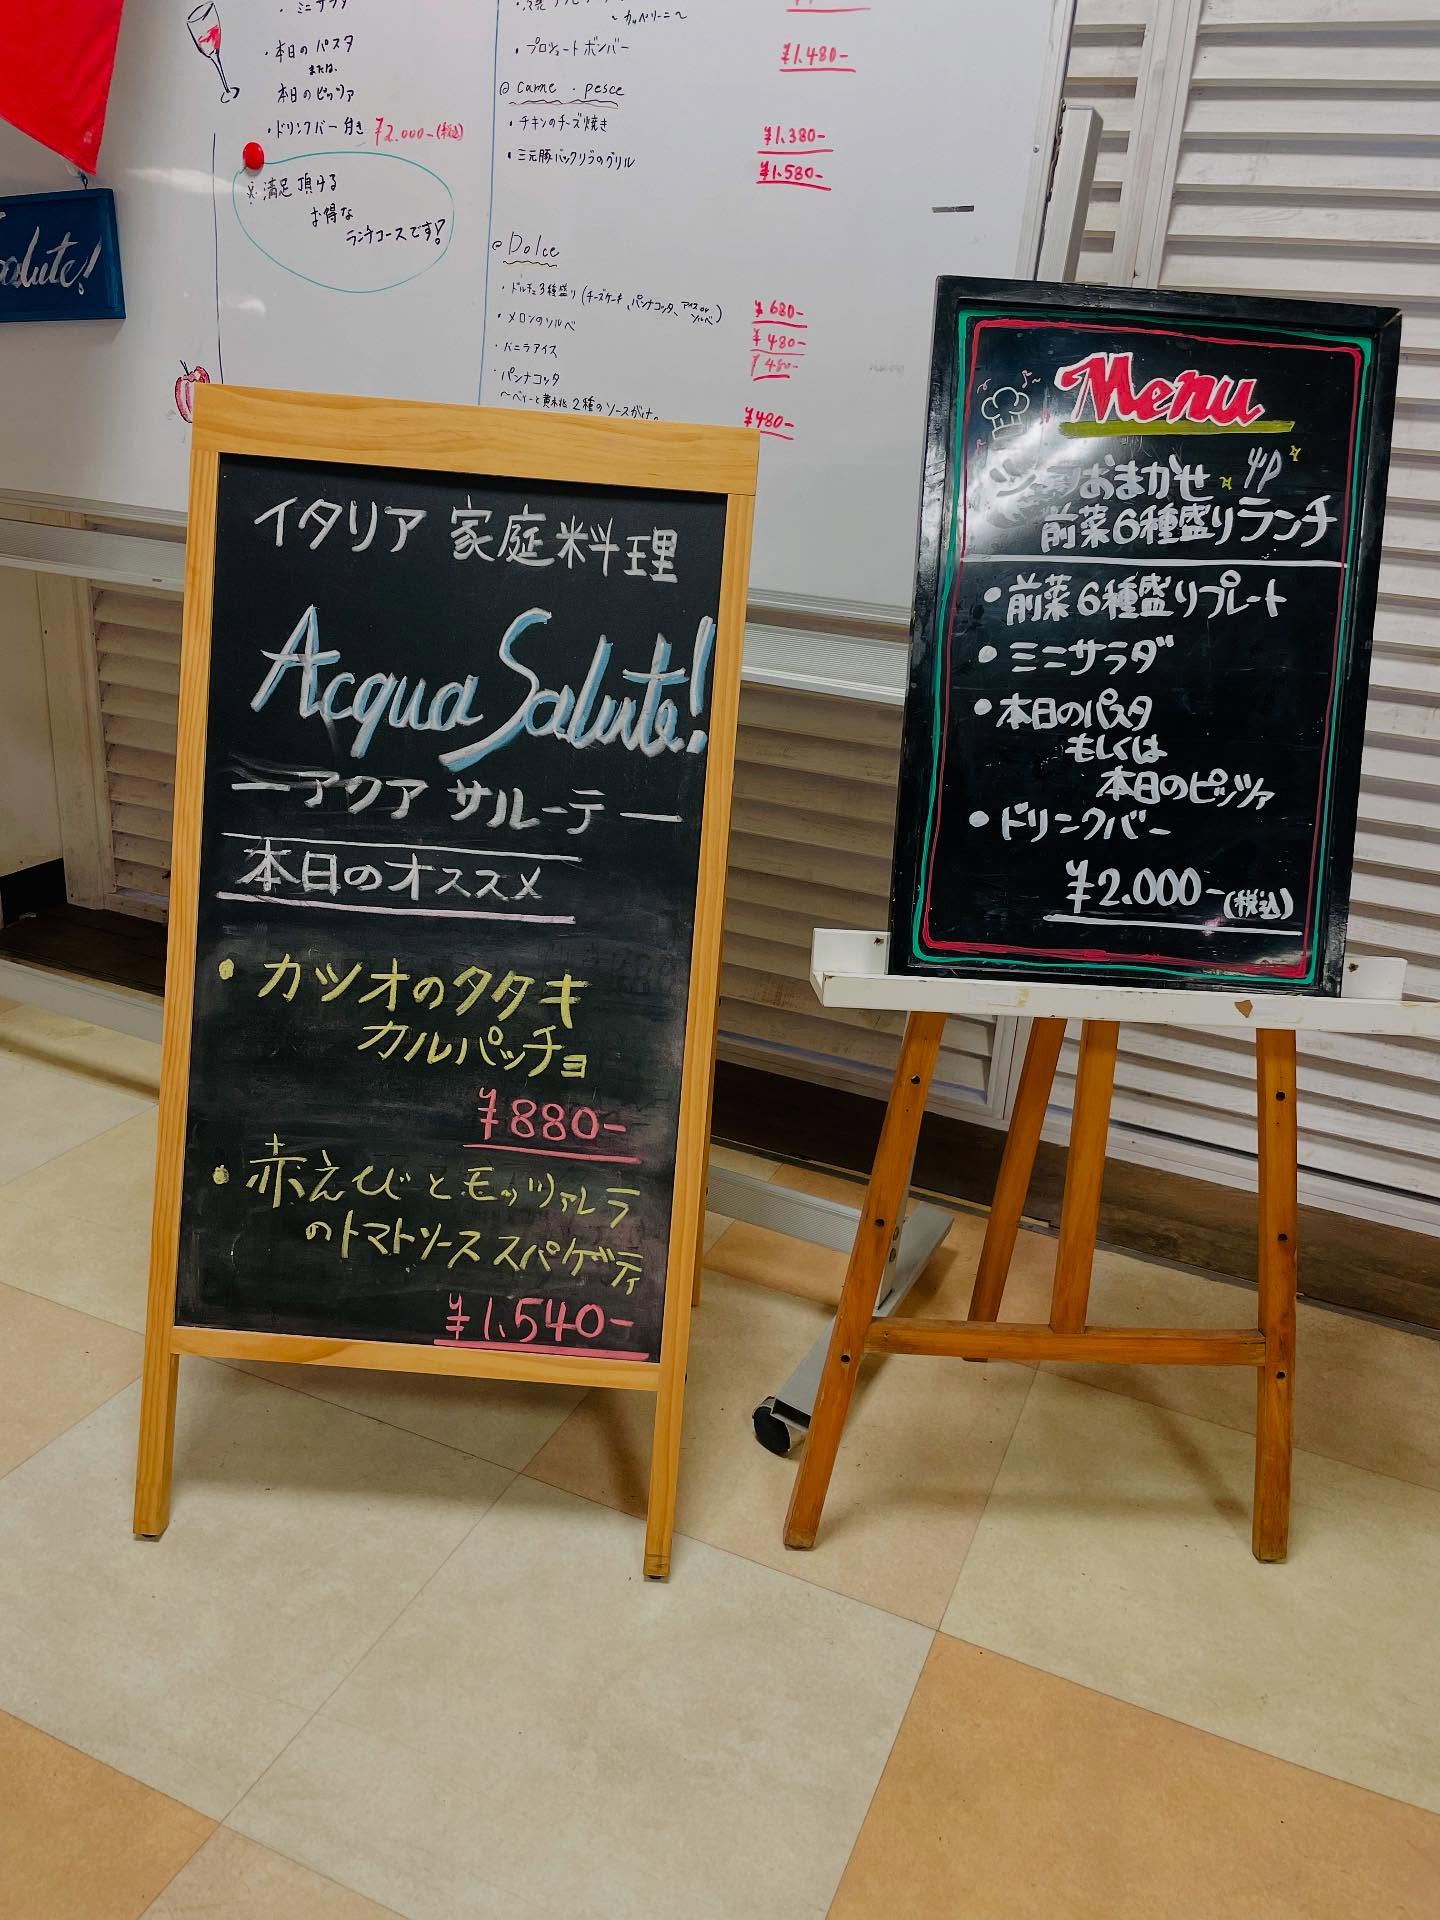 ・ミニサラダ
・本日のパスタ
または、
本日のピッツァ
・ドリンクバー付き ¥2.000-(税込)
※満足頂ける
お得な
ランチコースです!
〜カッペリーニ〜
・プロシュートボンバー ¥1.480-
◎carne . pesce
・チキンのチーズ焼き ¥1.380-
・三元豚バックリブのグリル ¥1.580-
◎Dolce
・ドルチェ3種盛り(チーズケーキ、パンナコッタ、アイスorソルベ) ¥680-
・メロンのソルベ ¥480-
・バニラアイス ¥480-
・パンナコッタ
〜ベリーと黄桃2種のソースがけ〜 ¥480-
alute!
イタリア 家庭料理
Acqua Salute!
ーアクア サルーテー
本日のオススメ
・カツオのタタキ
カルパッチョ
¥880-
・赤えびとモッツァレラ
のトマトソーススパゲティ
¥1.540-
Menu
シェフおまかせ
前菜6種盛りランチ
・前菜6種盛りプレート
・ミニサラダ
・本日のパスタ
もしくは
本日のピッツァ
・ドリンクバー
¥2.000-(税込)